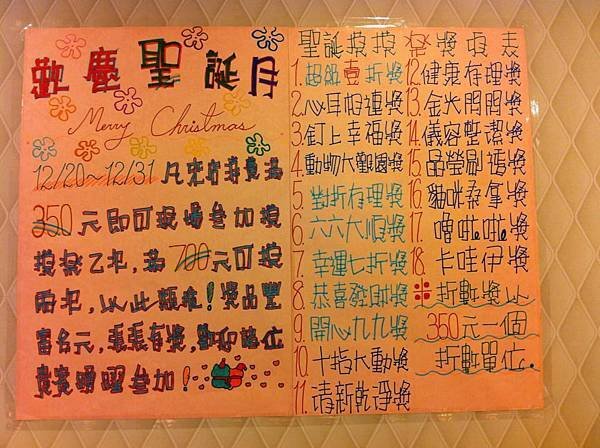 歡慶聖誕月
Merry Christmas
12/20~12/31 凡來店消費滿
350元即可現場參加摸
摸樂乙次,滿700元可摸
兩次,以此類推!獎品豐
富多元,張張有獎,歡迎諸位
貴賓踴躍參加!
聖誕摸摸樂獎項表
1. 超級壹折獎
2. 心耳相連獎
3. 釘上幸福獎
4. 動物大觀園獎
5. 對折有理獎
6. 六六大順獎
7. 幸運七折獎
8. 恭喜發財獎
9. 開心九九獎
10. 十指大動獎
11. 清新乾淨獎
12. 健康有理獎
13. 金光閃閃獎
14. 儀容整潔獎
15. 晶瑩剔透獎
16. 貓咪桑拿獎
17. 嚕啦啦獎
18. 卡哇伊獎
※折數獎以
350元一個
折數單位.